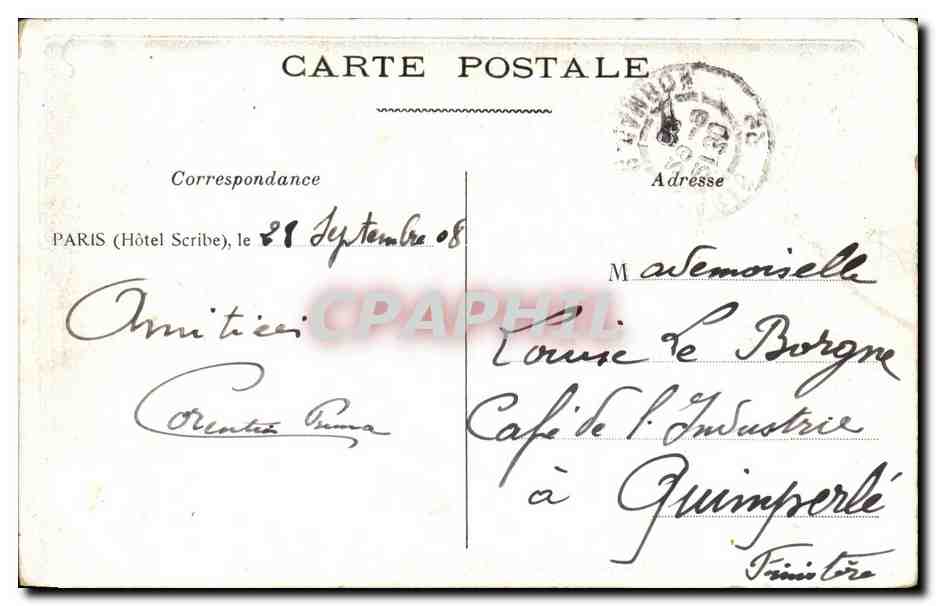 CARTE POSTALE
Correspondance
PARIS (Hôtel Scribe), le 21 Septembre 08
Amitiés
Corentin
Adresse
Mademoiselle
Louise Le Borgne
Café de l'Industrie
à Quimperlé
Finistère
CPAPHIL